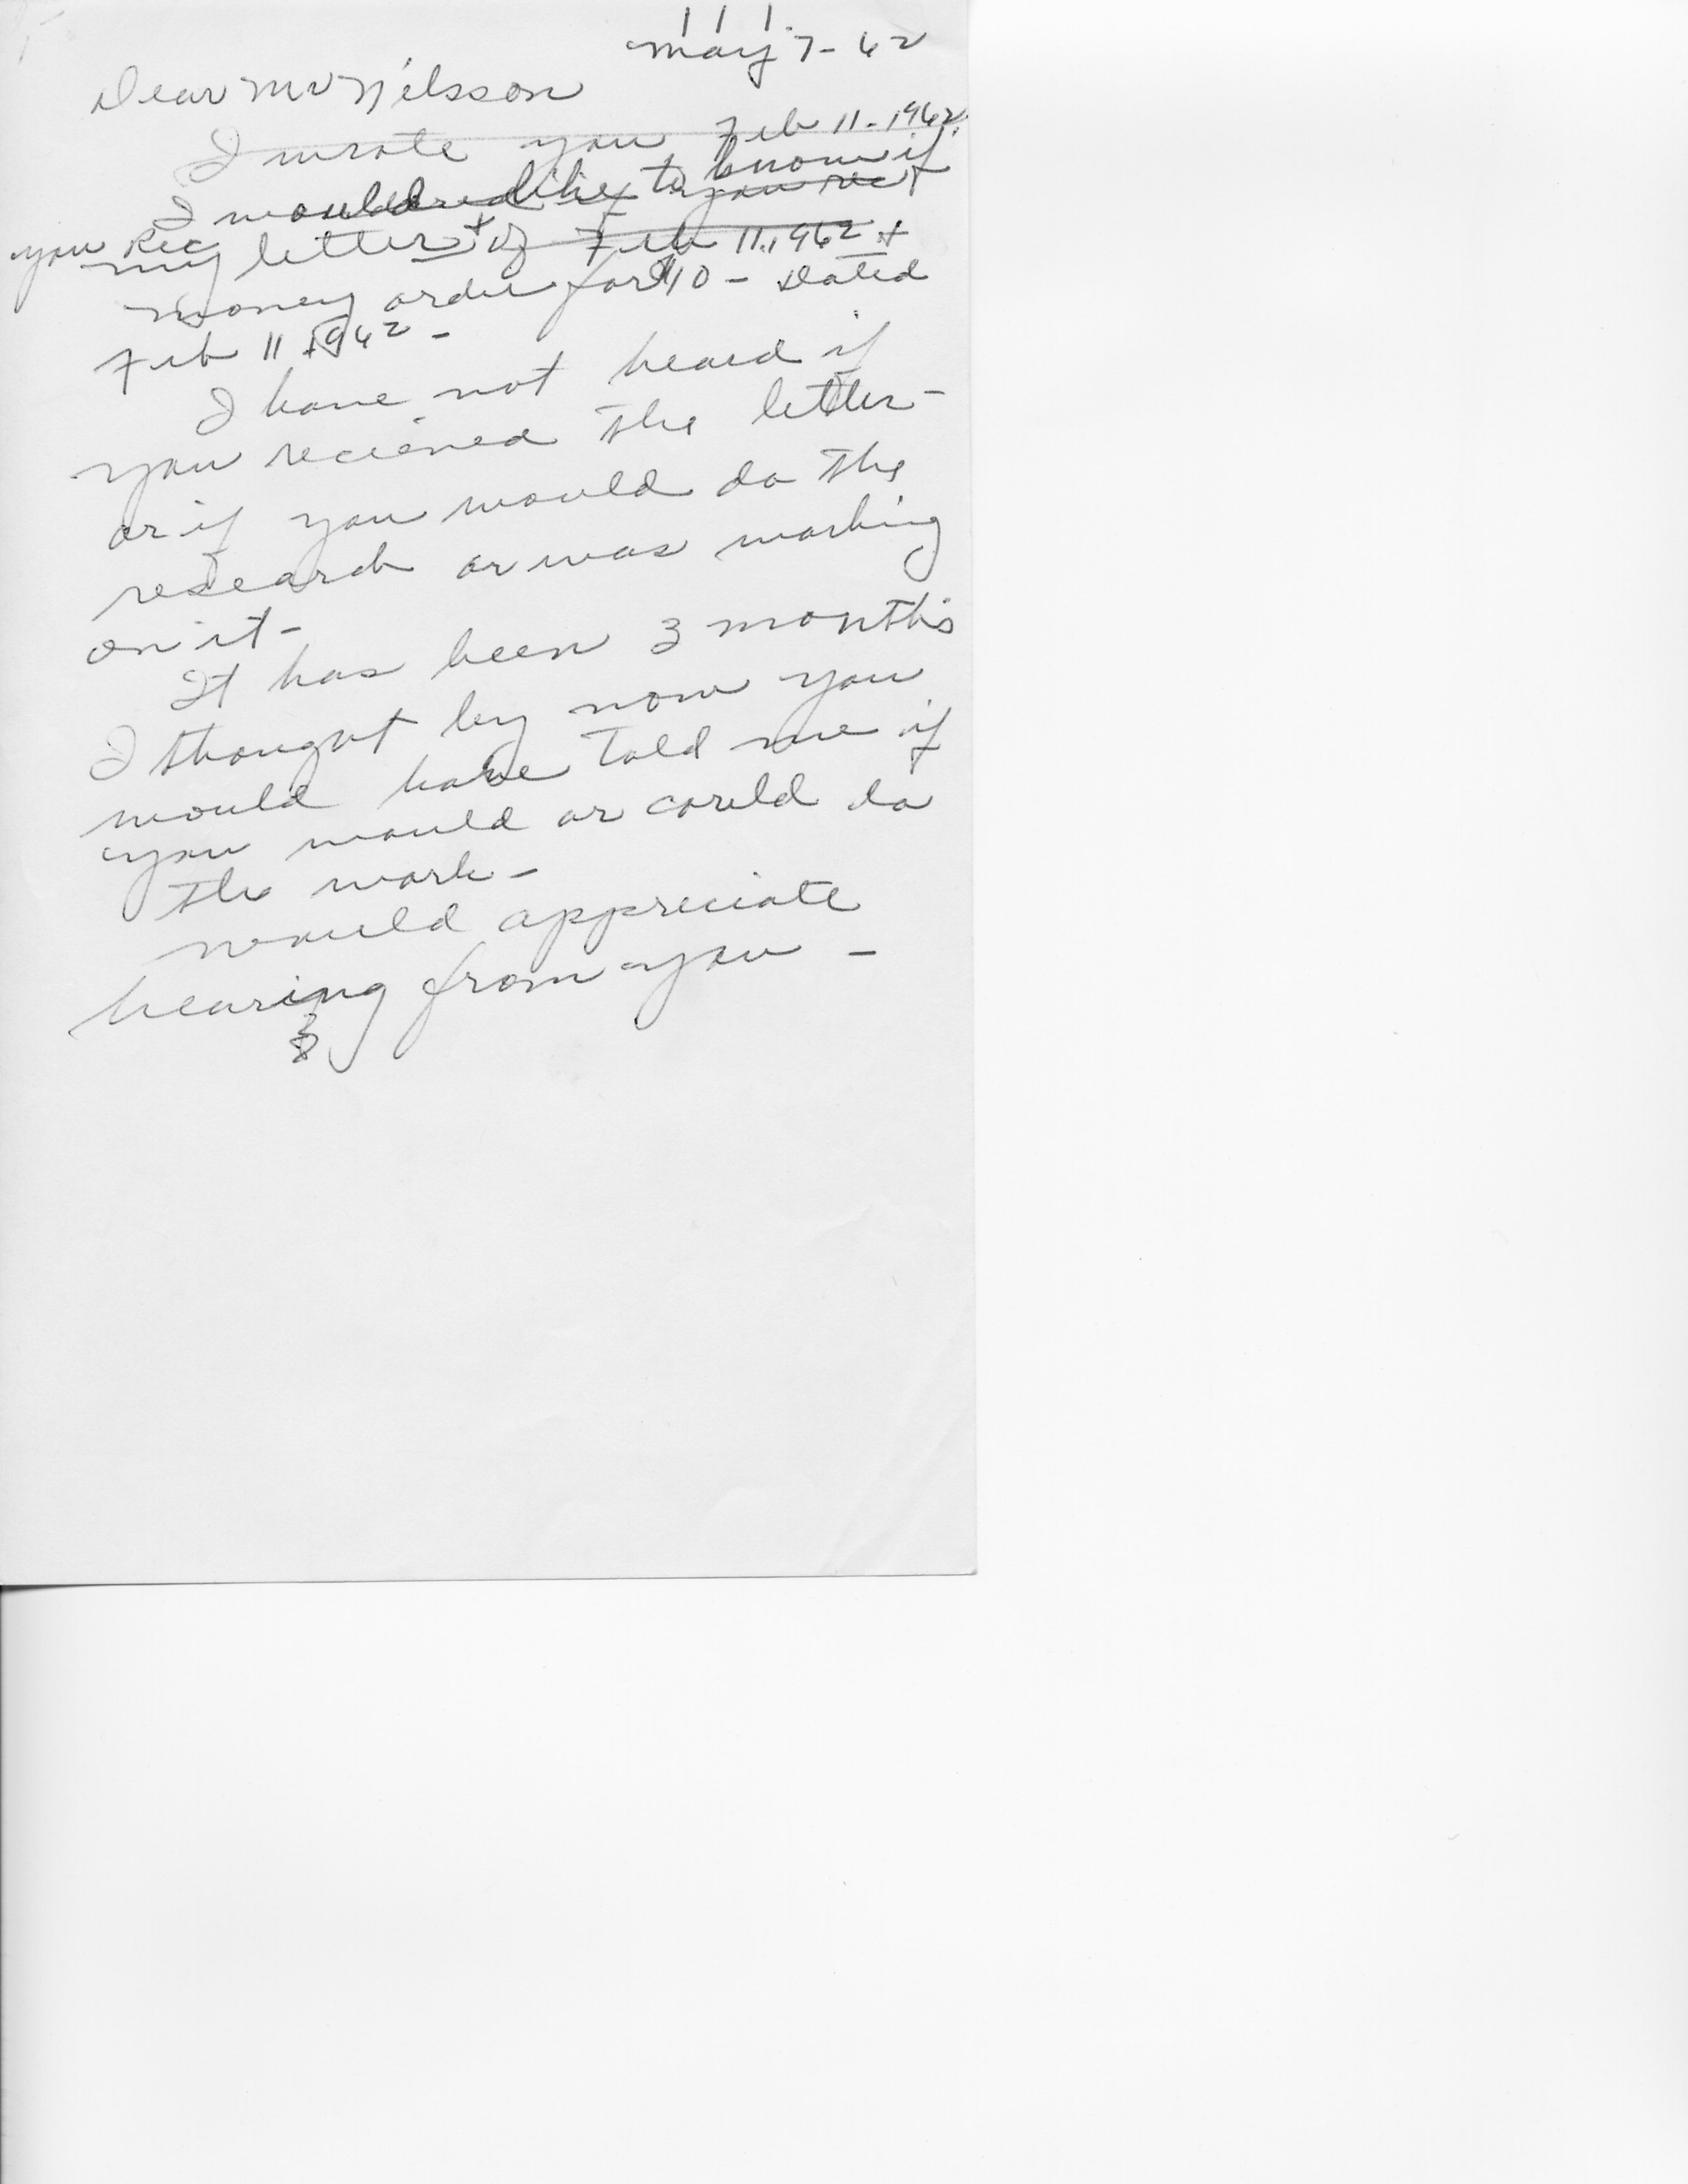 May 7-62
Dear Mr Nilsson
I wrote you Feb 11-1962.
I would like to know if
you rec
you Rec
my letter + of Feb 11.1962 +
money order for $10 - Dated
Feb 11 1962 -
I have not heard if
you recieved the letter -
or if you would do the
research or was working
on it -
It has been 3 months
I thought by now you
would have told me if
you would or could do
the work -
would appreciate
hearing from you -